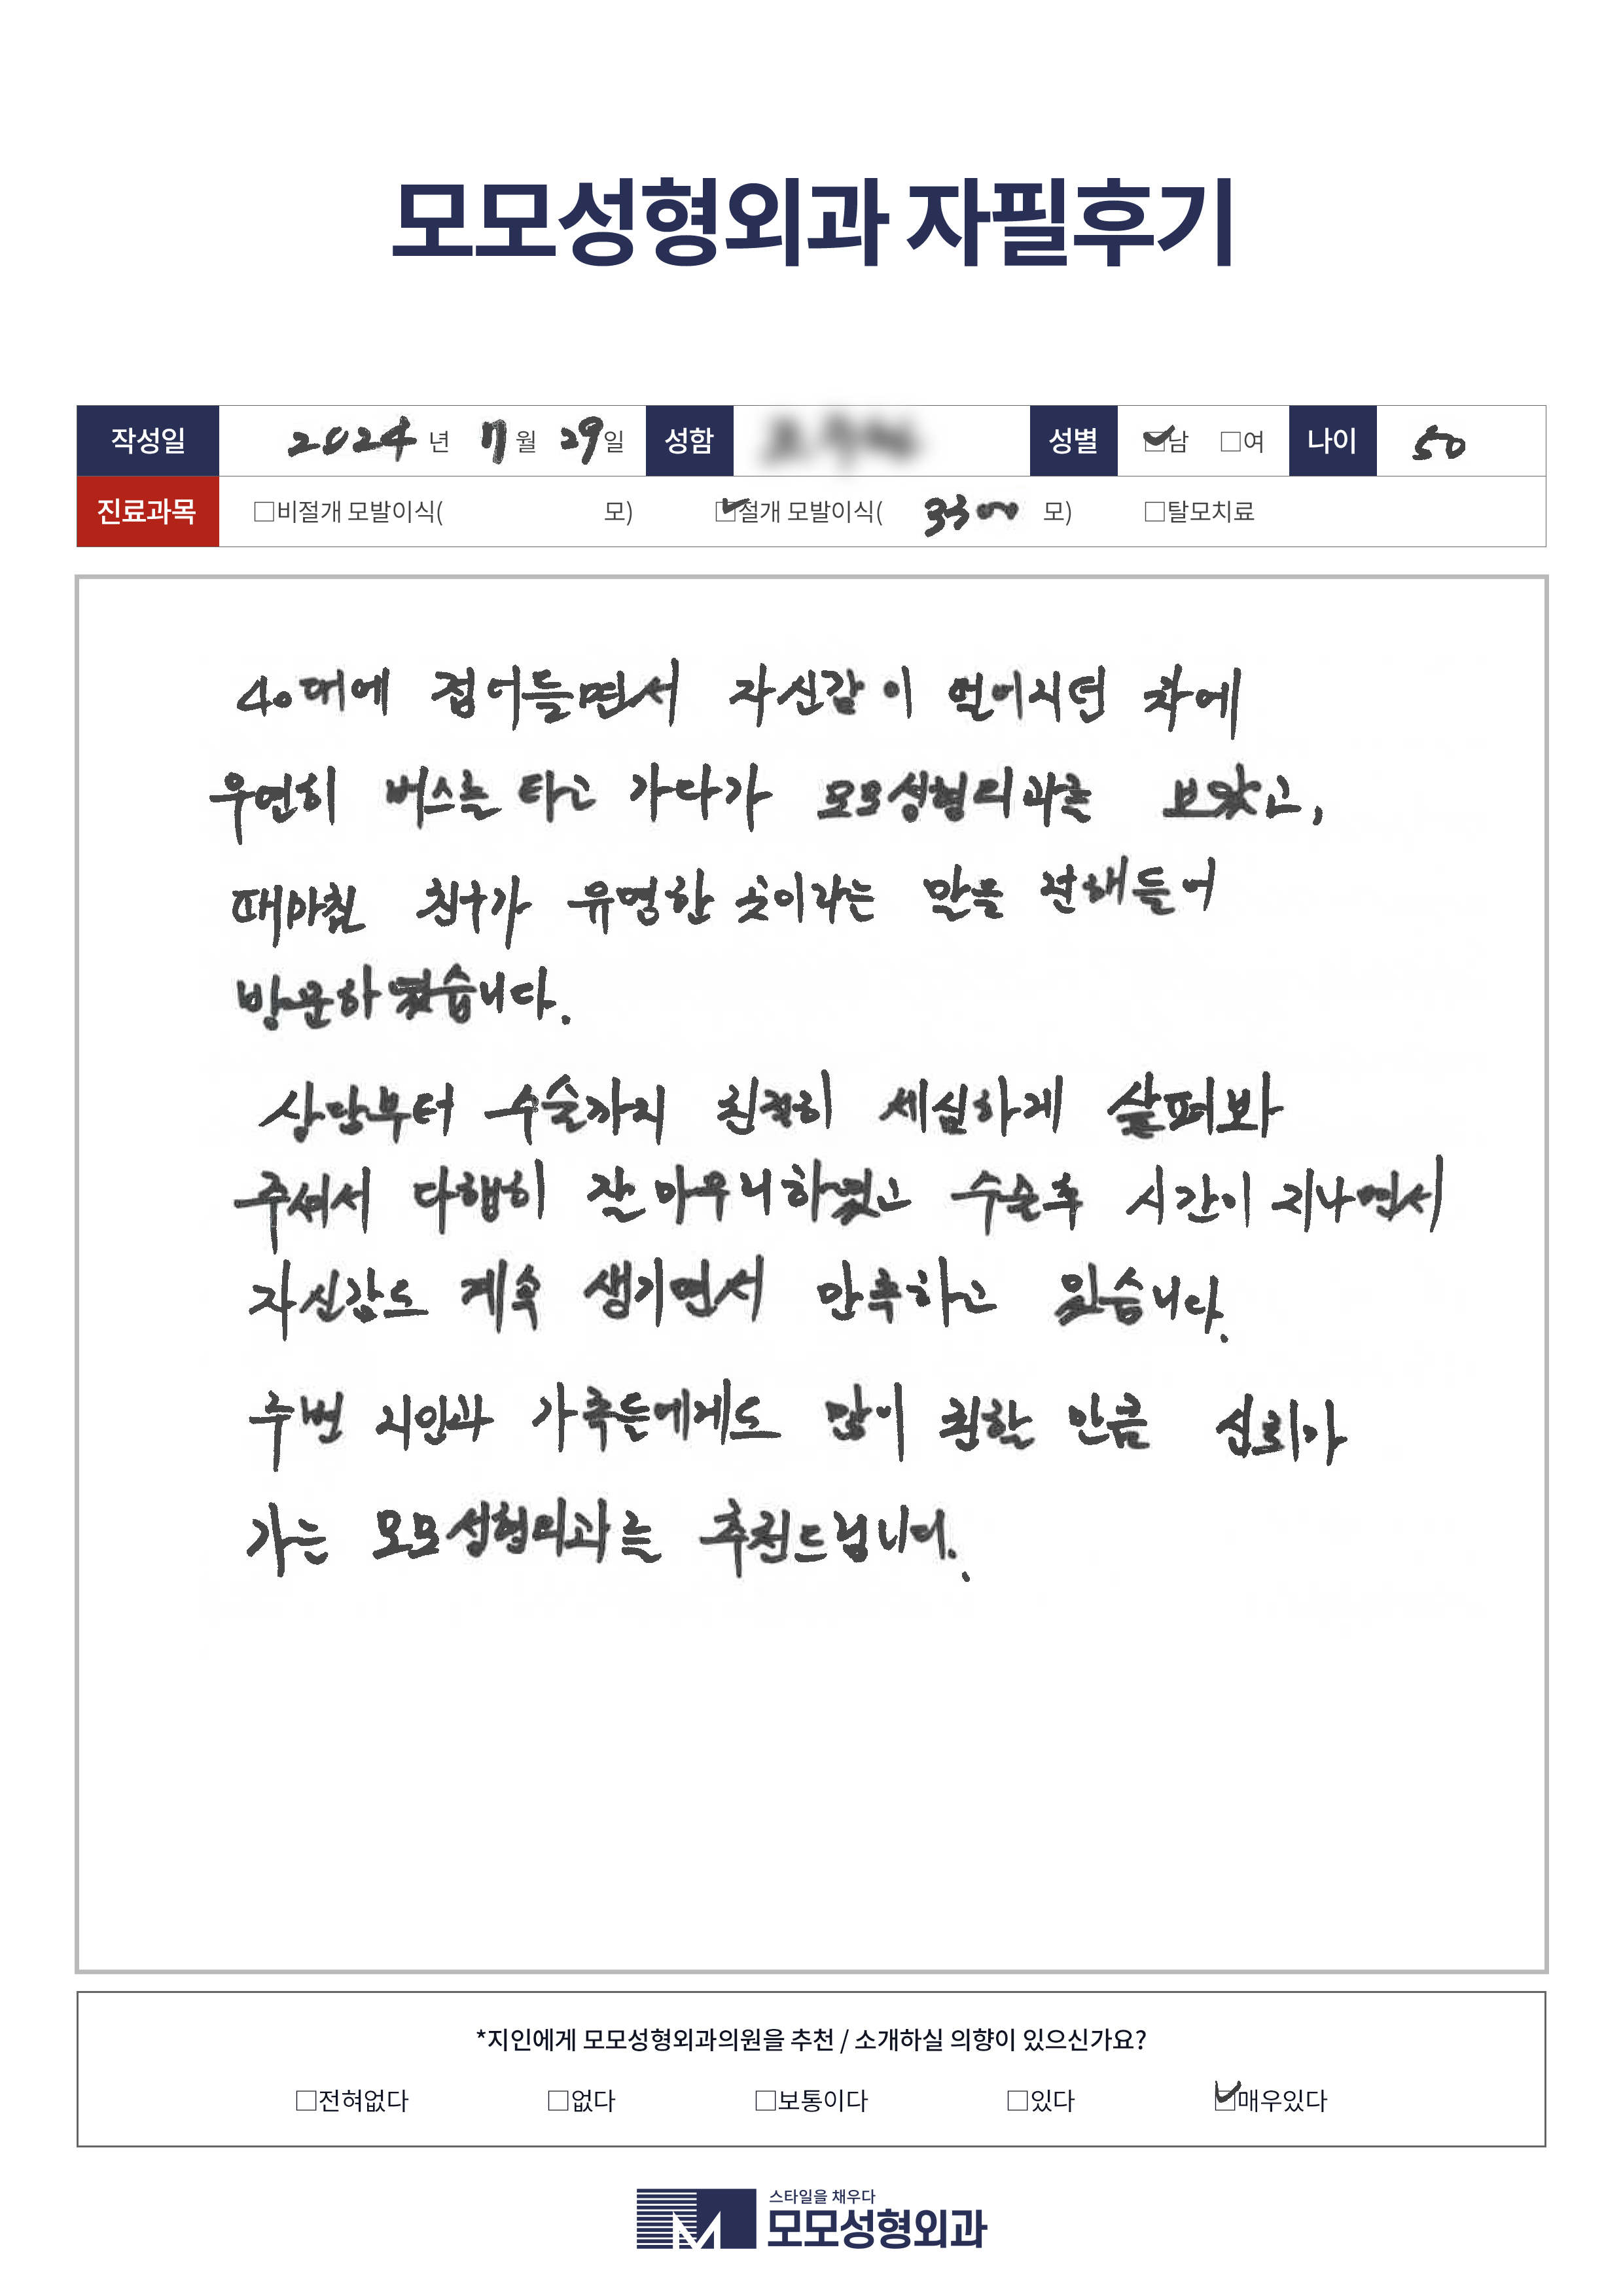 모모성형외과 자필후기
작성일 2024 년 11 월 29 일 성함 성별 ☑남 □여 나이 50
진료과목 □비절개 모발이식( 모) ☑절개 모발이식( 3300 모) □탈모치료
40대에 접어들면서 자신감이 없어지던 차에
우연히 버스를 타고 가다가 모모성형외과를 보았고,
때마침 친구가 유명한 곳이라는 말을 전해들어
방문하였습니다.
상담부터 수술까지 친절히 세심하게 살펴봐
주셔서 다행히 잘 마무리하였고 수술후 시간이 지나면서
자신감도 계속 생기면서 만족하고 있습니다.
주변 지인과 가족들에게도 많이 권할 만큼 신뢰가
가는 모모성형외과를 추천드립니다.
*지인에게 모모성형외과의원을 추천 / 소개하실 의향이 있으신가요?
□전혀없다 □없다 □보통이다 □있다 ☑매우있다
스타일을 채우다
모모성형외과